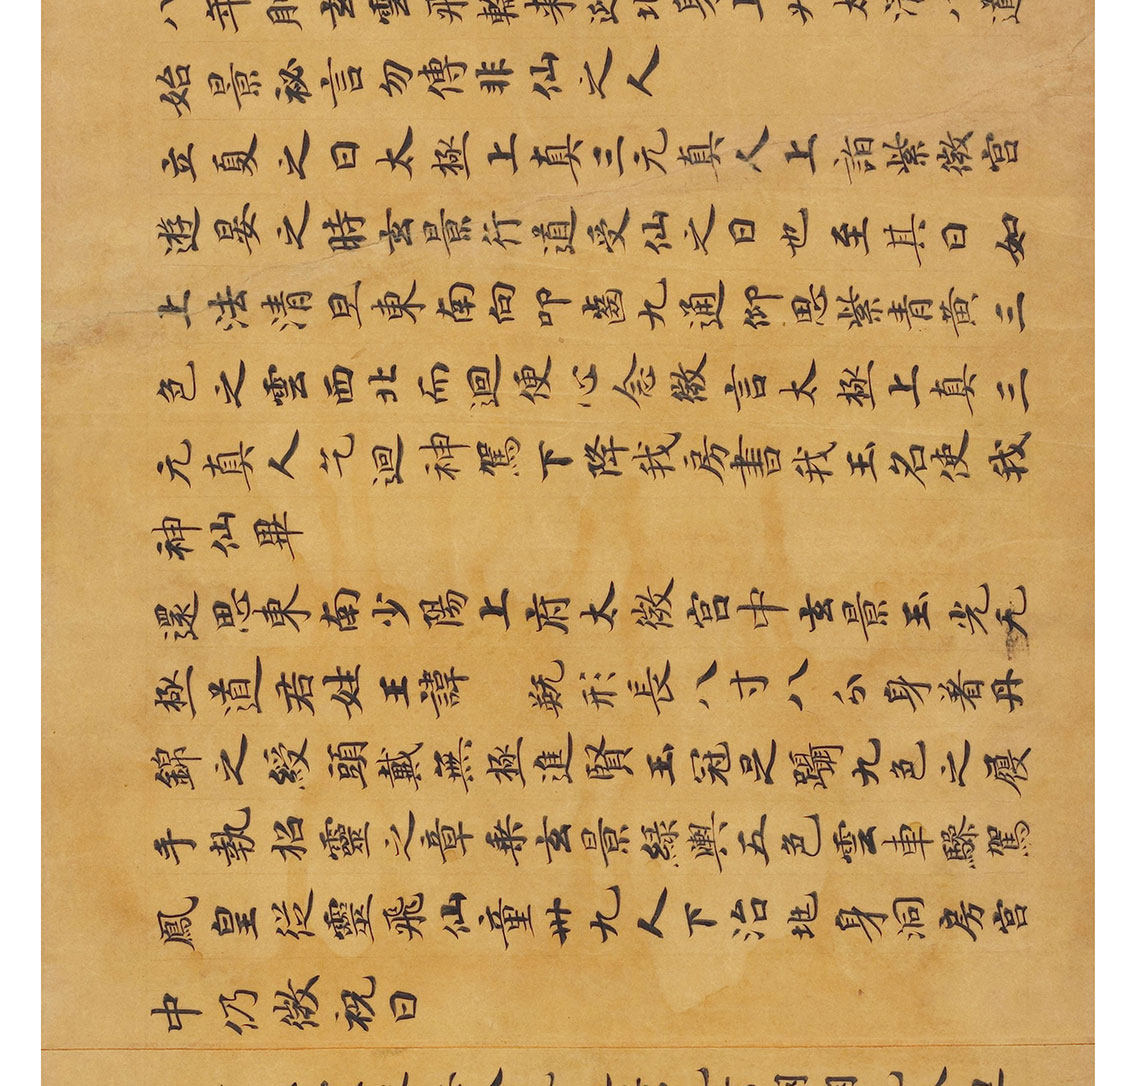 八年玄雲飛軿來迎兆身上升太清八道
始景祕言勿傳非仙之人
立夏之日太極上真三元真人上詣紫微宮
遊晏之時玄景行道受仙之日也至其日如
上法清旦東南向叩齒九通仰思紫青黃三
色之雲西北而迴便心念微言太極上真三
元真人乞迴神駕下降我房書我玉名使我
神仙畢
還思東南少陽上府太微宮中玄景玉光无
極道君姓王諱 形長八寸八分身着丹
錦之綬頭戴無極進賢玉冠足躡九色之履
手執招靈之章乘玄景綠輿五色雲車驂駕
鳳皇從靈飛仙童卌九人下治兆身洞房宮
中仍微祝曰